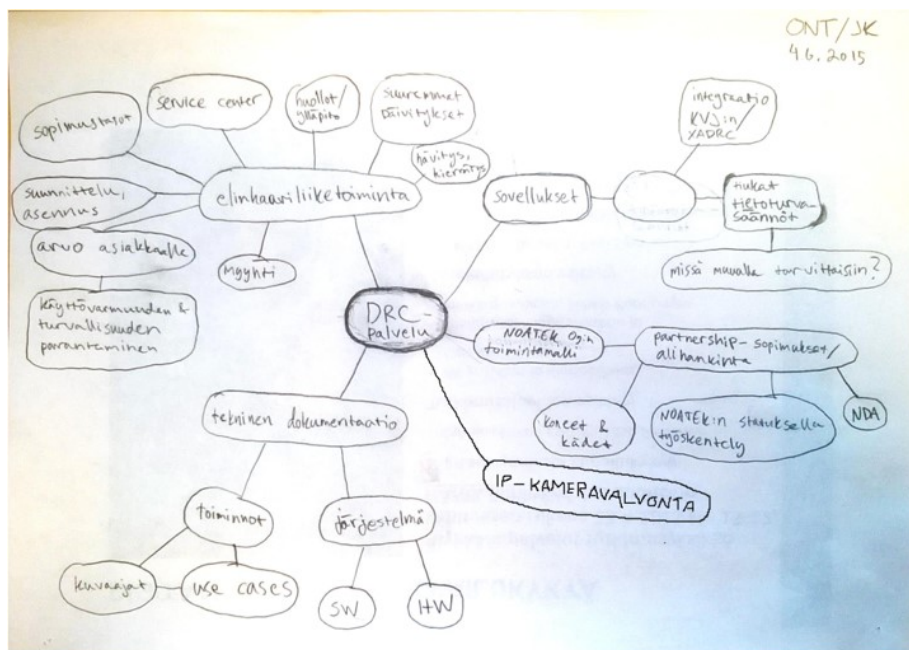 ONT/JK
4.6.2015
sopimustasot
service center
huollot/
ylläpito
suuremmat
päivitykset
hävitys,
kierrätys
suunnittelu,
asennus
elinkaariliiketoiminta
arvo asiakkaalle
myynti
käyttövarmuuden &
turvallisuuden
parantaminen
sovellukset
integraatio
KVJ:n/
XADRC
tiukat
tietoturva-
säännöt
missä muualla tarvittaisiin?
DRC-
palvelu
NOATEK Oy:n
toimintamalli
partnership-sopimukset/
alihankinta
koneet &
kädet
NOATEK:n statuksella
työskentely
NDA
IP-KAMERAVALVONTA
tekninen dokumentaatio
toiminnot
järjestelmä
kuvaajat
use cases
SW
HW